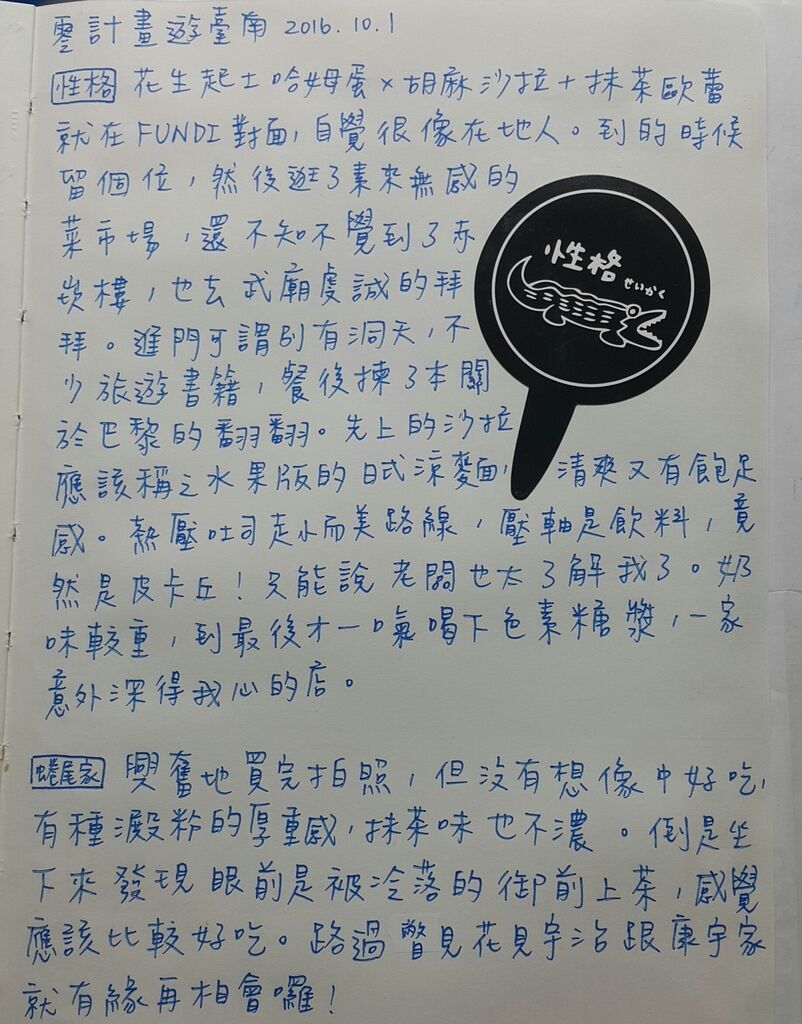 零計畫遊臺南 2016.10.1
性格 花生起士哈姆蛋×胡麻沙拉+抹茶歐蕾
就在FUNDI對面,自覺很像在地人。到的時候
留個位,然後逛了素來無感的
菜市場,還不知不覺到了赤
崁樓,也去武廟虔誠的拜
拜。進門可謂別有洞天,不
少旅遊書籍,餐後揀了本關
於巴黎的翻翻。先上的沙拉
應該稱之水果版的日式涼麵,清爽又有飽足
感。熱壓吐司走小而美路線,壓軸是飲料,竟
然是皮卡丘!只能說老闆也太了解我了。奶
味較重,到最後才一口氣喝下色素糖漿,一家
意外深得我心的店。
性格
せいかく
蜷尾家 興奮地買完拍照,但沒有想像中好吃,
有種澱粉的厚重感,抹茶味也不濃。倒是坐
下來發現眼前是被冷落的御前上茶,感覺
應該比較好吃。路過瞥見花見宇治跟康宇家
就有緣再相會囉!